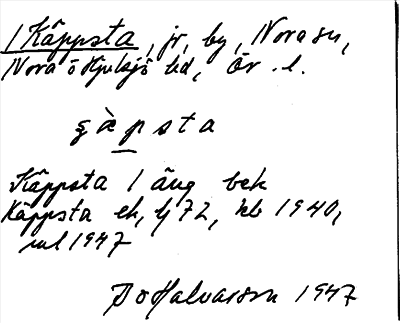 1 Käppsta, jr, by, Nora sn,
Nora o Hjulsjö hd, Ör. l.
şàp̲sta
Käppsta 1 äng bek
Käppsta ek, lj 72, kb 1940,
ml 1947
D o Halvarson 1947